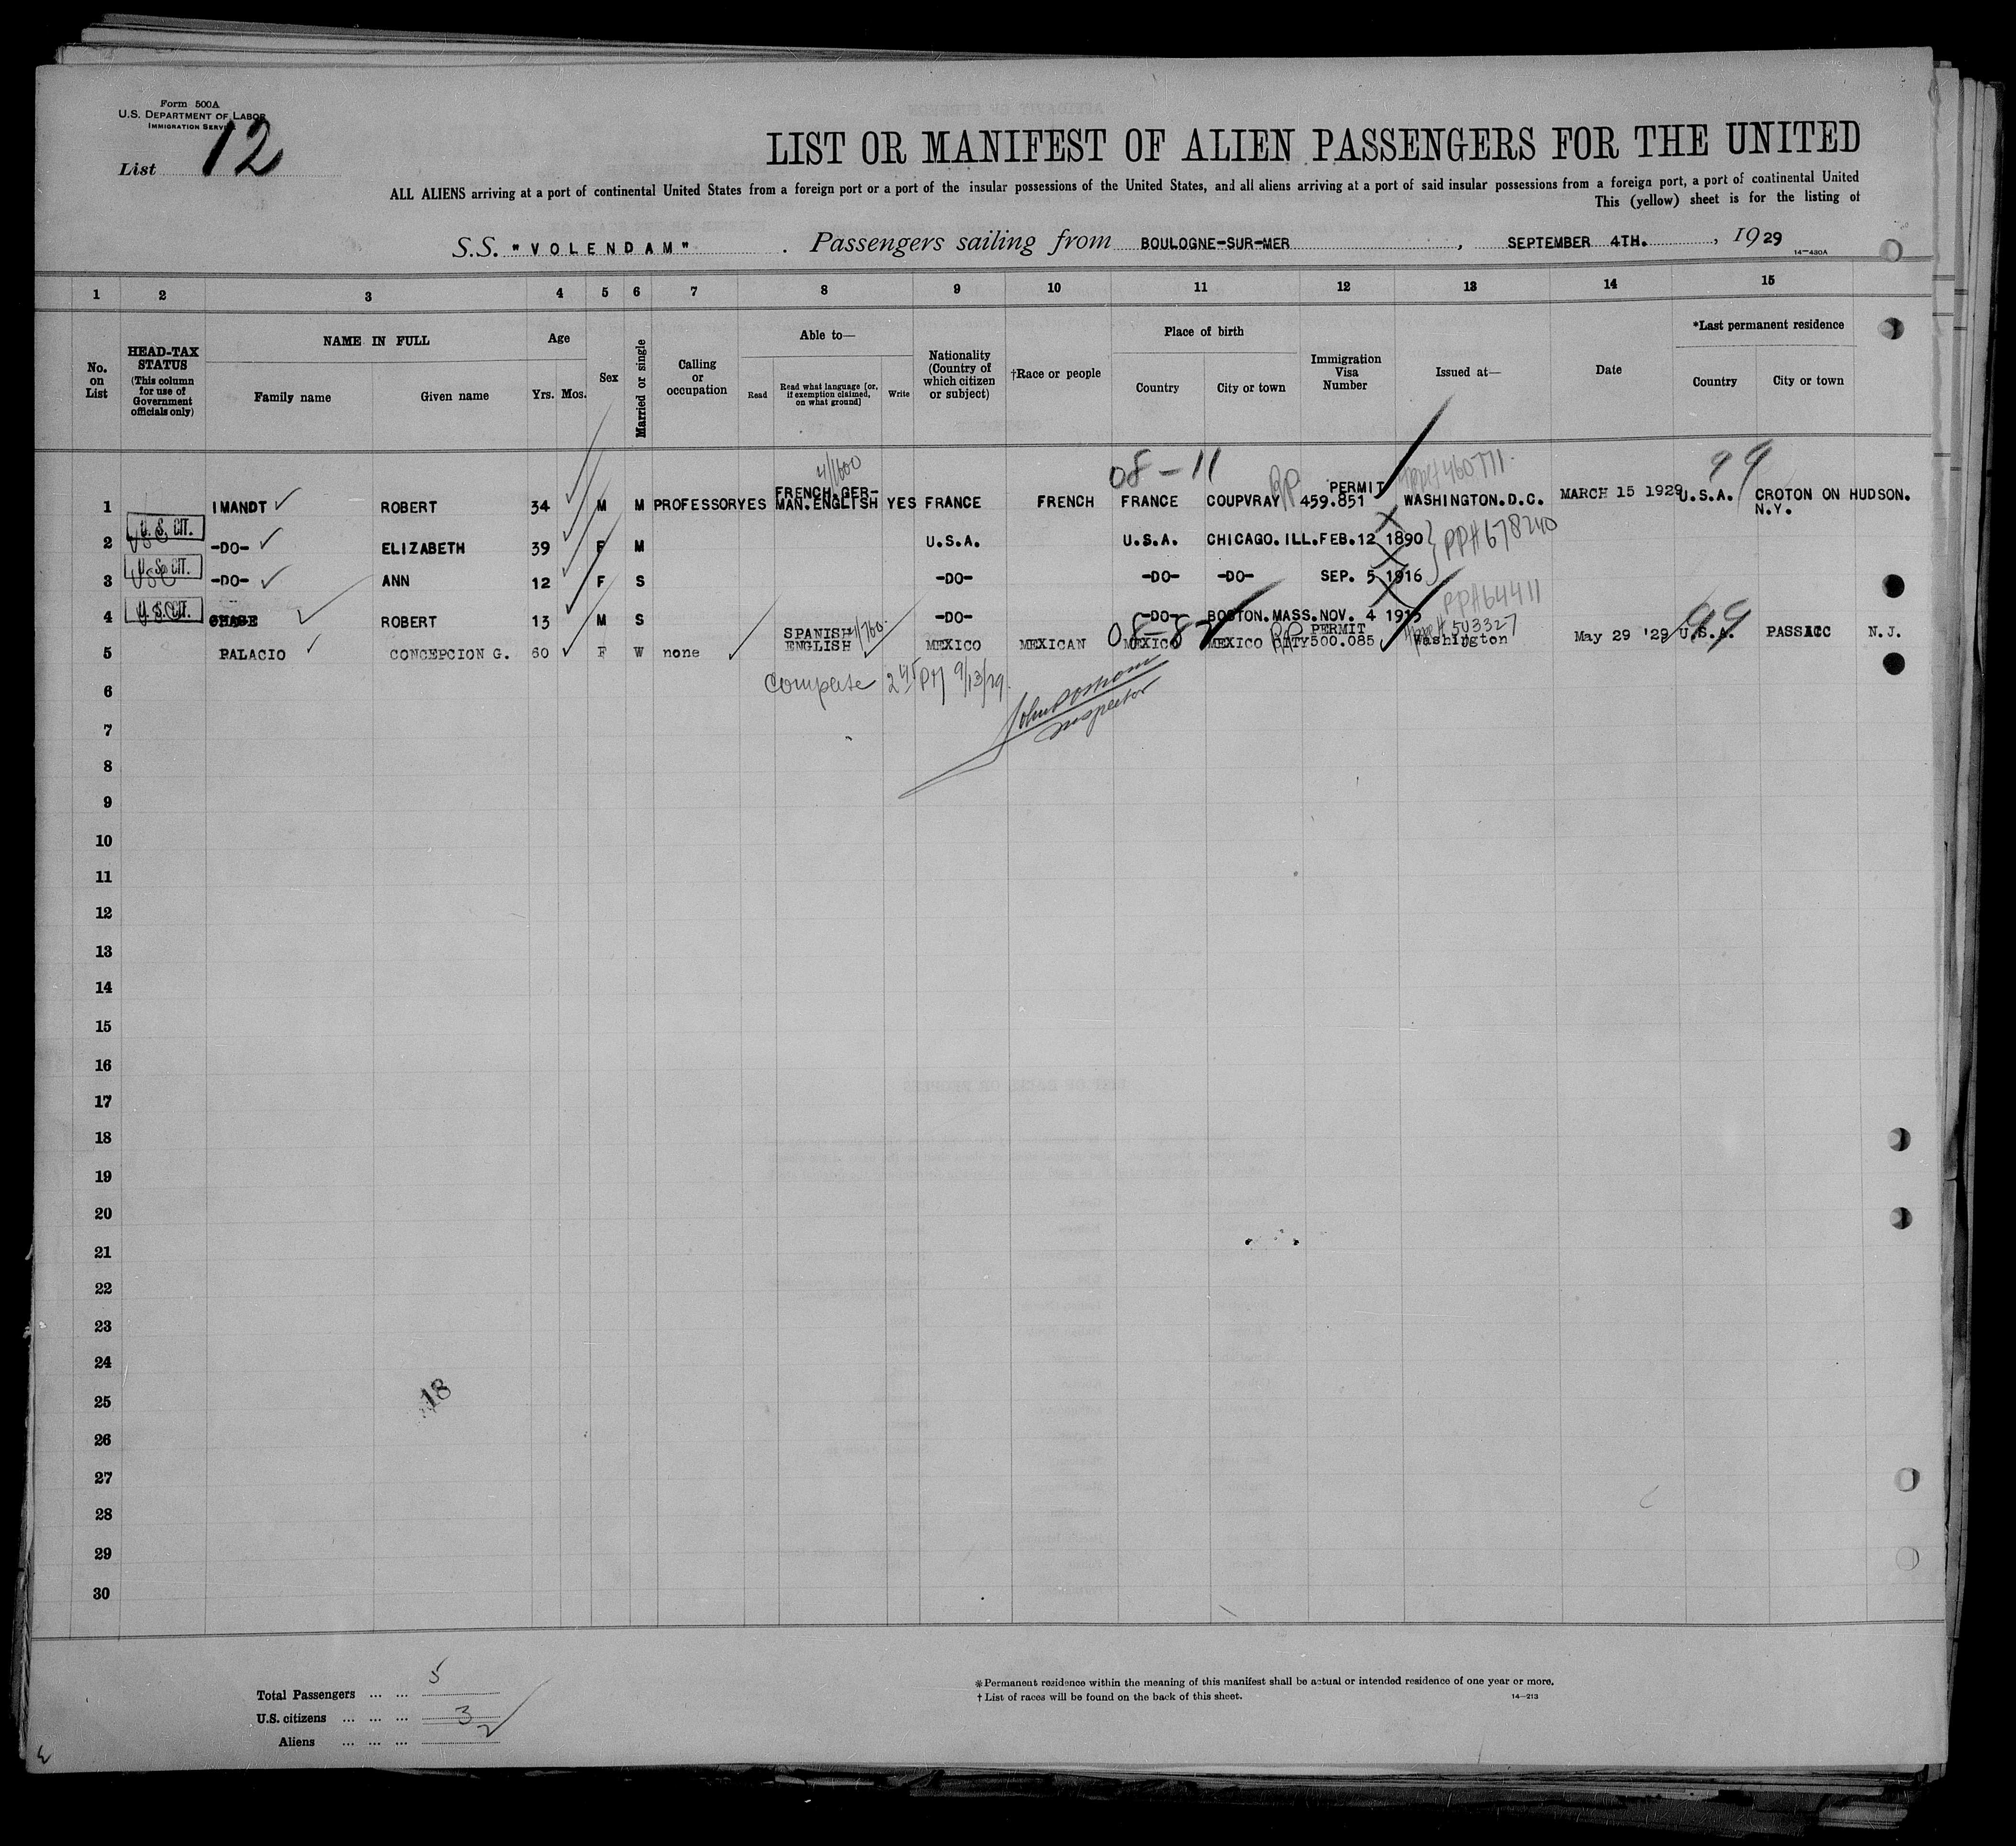 Form 500A
U.S. DEPARTMENT OF LABOR
IMMIGRATION SERVICE
List 12
LIST OR MANIFEST OF ALIEN PASSENGERS FOR THE UNITED
ALL ALIENS arriving at a port of continental United States from a foreign port or a port of the insular possessions of the United States, and all aliens arriving at a port of said insular possessions from a foreign port, a port of continental United
This (yellow) sheet is for the listing of
S.S. "VOLENDAM" . Passengers sailing from BOULOGNE-SUR-MER , SEPTEMBER 4TH. , 1929
14-430A
1 2 3 4 5 6 7 8 9 10 11 12 13 14 15
No. on List
HEAD-TAX STATUS (This column for use of Government officials only)
NAME IN FULL
Family name Given name
Age
Yrs. Mos.
Sex
Married or single
Calling or occupation
Able to—
Read Read what language [or, if exemption claimed, on what ground] Write
Nationality (Country of which citizen or subject)
†Race or people
Place of birth
Country City or town
Immigration Visa Number
Issued at—
Date
*Last permanent residence
Country City or town
4/1600 08-11 99
1 IMANDT ROBERT 34 M M PROFESSOR YES FRENCH.GERMAN.ENGLISH YES FRANCE FRENCH FRANCE COUPVRAY RP PERMIT 459.851 WASHINGTON.D.C. MARCH 15 1929 U.S.A. CROTON ON HUDSON. N.Y.
U.S. CIT.
USC
2 -DO- ELIZABETH 39 F M U.S.A. U.S.A. CHICAGO.ILL. FEB.12 1890 PP#678240
U.S. CIT.
USC
3 -DO- ANN 12 F S -DO- -DO- -DO- SEP. 5 1916
U.S. CIT.
4 CHASE ROBERT 13 M S -DO- -DO- BOSTON.MASS. NOV. 4 1915 PP#64411
08-82 99
5 PALACIO CONCEPCION G. 60 F W none SPANISH ENGLISH MEXICO MEXICAN MEXICO MEXICO CITY RP PERMIT 500.085 Washington May 29 '29 U.S.A. PASSAIC N.J.
Complete 2 45 PM 9/13/29
Inspector
6
7
8
9
10
11
12
13
14
15
16
17
18
19
20
21
22
23
24
25
18
26
27
28
29
30
Total Passengers ... ... 5
U.S. citizens ... ... ... 3
Aliens ... ... ... 2
*Permanent residence within the meaning of this manifest shall be actual or intended residence of one year or more.
†List of races will be found on the back of this sheet.
14-213